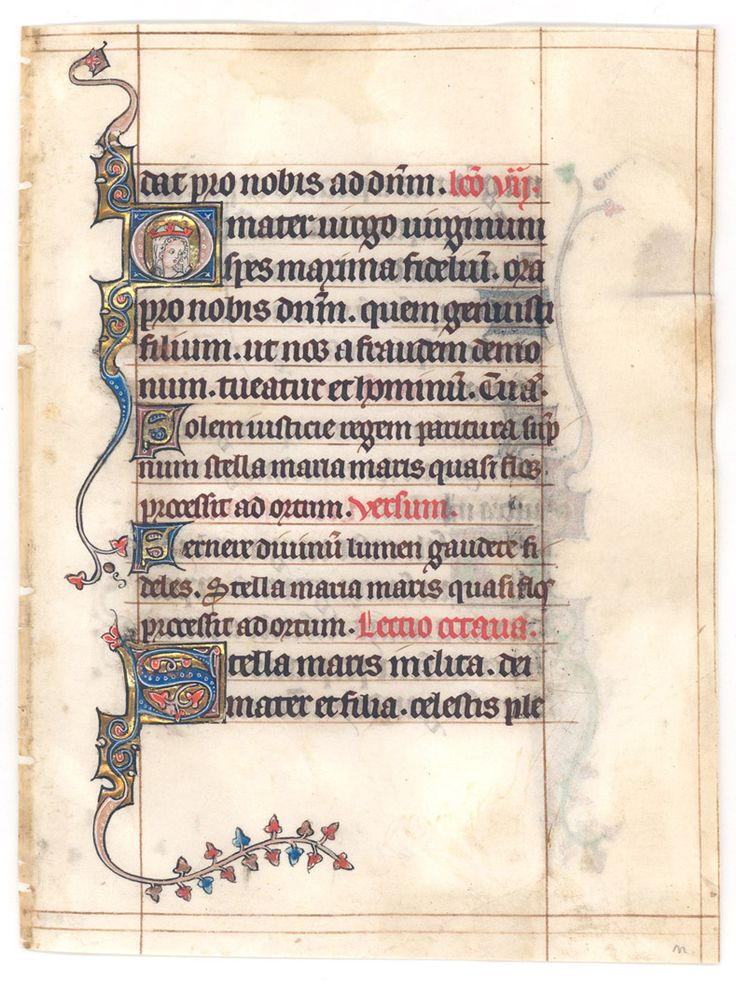 dat pro nobis ad dnm̄. lcō vij.
O mater uirgo uirginum
spes maxima fideliū. ora
pro nobis dnm̄. quem genuisti
filium. ut nos a fraudem demo
num. tueatur et hominū. Tu aū.
Solem iusticie regem paritura sup̄
num stella maria maris quasi flos
processit ad ortum. Versum.
Cernere diuinū lumen gaudete fi
deles. Stella maria maris quasi flos
processit ad ortum. Lectio octaua.
Stella maris inclita. dei
mater et filia. celestis ple